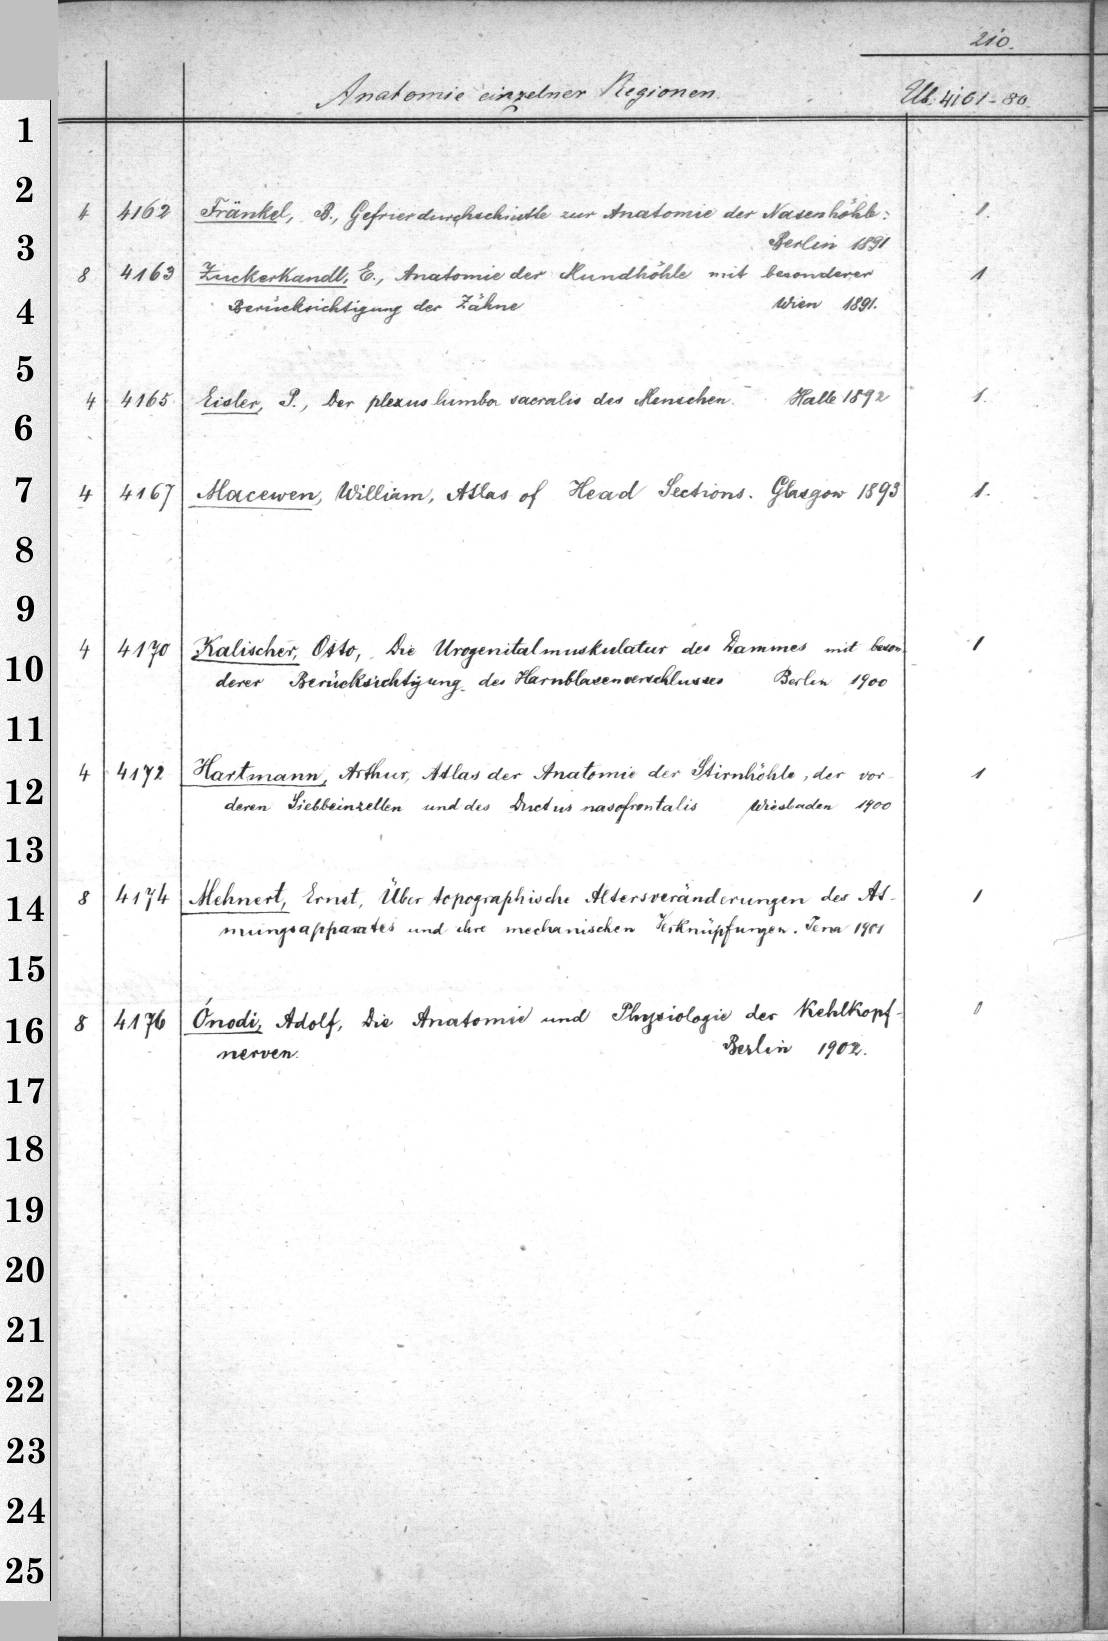 210.
Anatomie einzelner Regionen. Ub. 4161-80.
1
2
4 4162 Fränkel, B., Gefrierdurchschnitte zur Anatomie der Nasenhöhle: 1.
3
Berlin 1891
8 4163 Zuckerkandl, E., Anatomie der Mundhöhle mit besonderer 1
4
Berücksichtigung der Zähne Wien 1891.
5
4 4165 Eisler, P., Der plexus lumbo sacralis des Menschen. Halle 1892 1.
6
7 4 4167 Macewen, William, Atlas of Head Sections. Glasgow 1893 1.
8
9
4 4170 Kalischer, Otto, Die Urogenitalmuskulatur des Dammes mit beson- 1
10
derer Berücksichtigung des Harnblasenverschlusses Berlin 1900
11
4 4172 Hartmann, Arthur, Atlas der Anatomie der Stirnhöhle, der vor- 1
12
deren Siebbeinzellen und des Ductus nasofrontalis Wiesbaden 1900
13
8 4174 Mehnert, Ernst, Über topographische Altersveränderungen des At- 1
14
mungsapparates und ihre mechanischen Verknüpfungen. Jena 1901
15
8 4176 Ónodi, Adolf, Die Anatomie und Physiologie der Kehlkopf- 0
16
nerven. Berlin 1902.
17
18
19
20
21
22
23
24
25